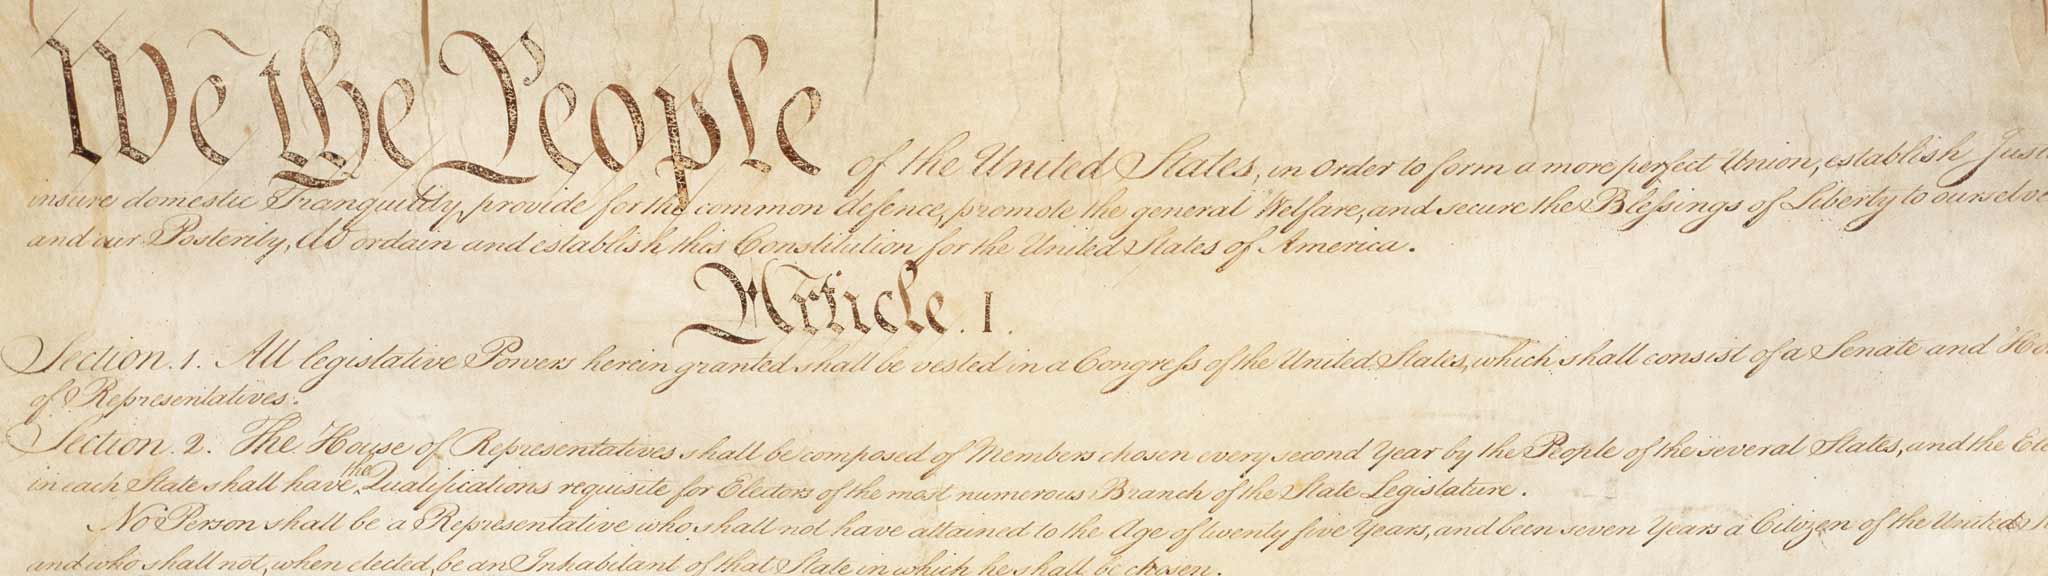 We the People of the United States, in Order to form a more perfect Union, establish
insure domestic Tranquility, provide for the common defence, promote the general Welfare, and secure the Blessings of Liberty to
and our Posterity, do ordain and establish this Constitution for the United States of America.
Article. I.
Section. 1. All legislative Powers herein granted shall be vested in a Congress of the United States, which shall consist of a Senate and
of Representatives.
Section. 2. The House of Representatives shall be composed of Members chosen every second Year by the People of the several States, and the
in each State shall have the Qualifications requisite for Electors of the most numerous Branch of the State Legislature.
No Person shall be a Representative who shall not have attained to the Age of twenty five Years, and been seven Years a Citizen of the United
and who shall not, when elected, be an Inhabitant of that State in which he shall be chosen.